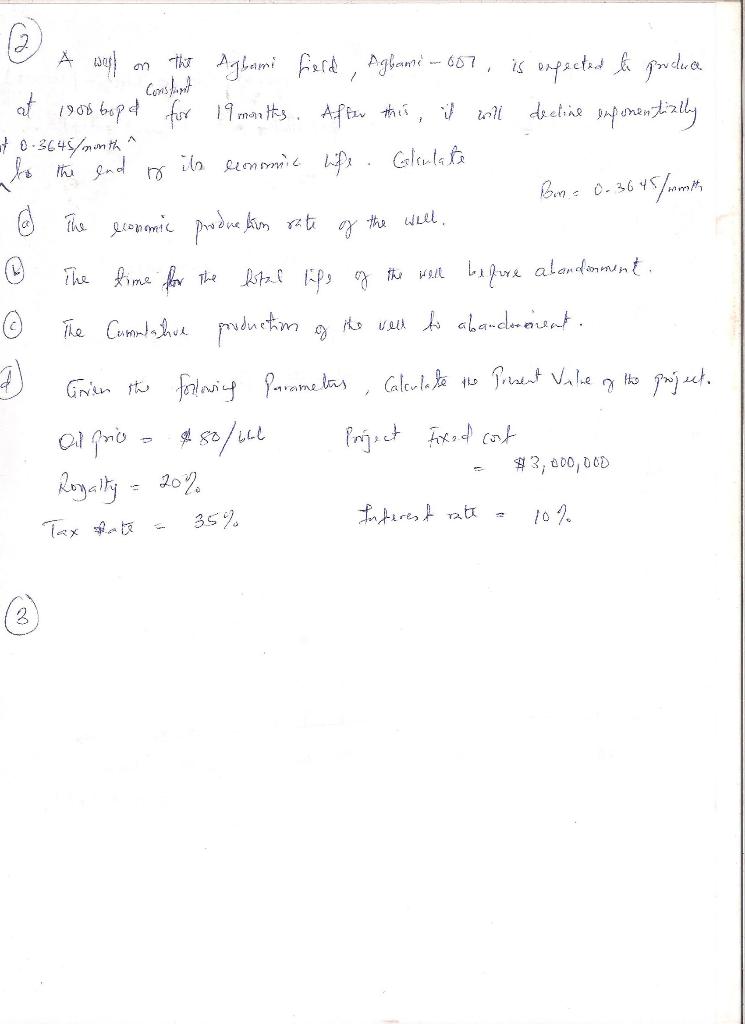 2
A well on the Agbami field, Agbami - 007, is expected to produce
Constant
at 1900 bopd for 19 months. After this, it will decline exponentially
at 0.3645/month ^
to the end of its economic life. Calculate
Bm = 0.3645/month
(a) The economic production rate of the well.
(b) The time for the total life of the well before abandonment.
(c) The Cumulative production of the well to abandonment.
(d) Given the following Parameters, Calculate the Present Value of the project.
Oil price = $80/bbl Project Fixed cost
= $3,000,000
Royalty = 20%
Tax Rate = 35% Interest rate = 10%
3